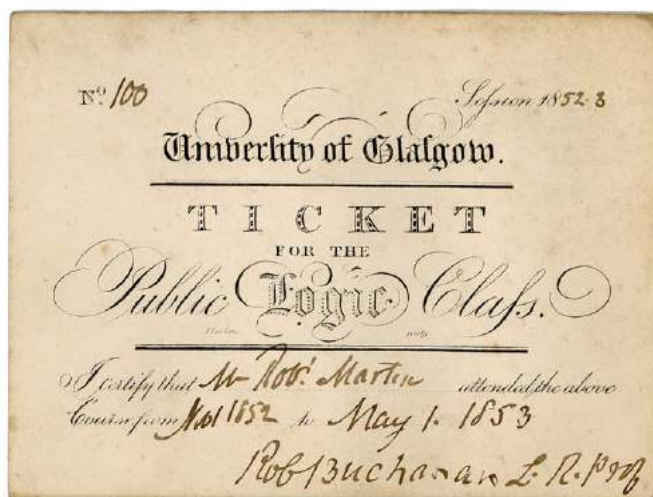 No 100 Seſsion 1852-3
Univerſity of Glaſgow.
TICKET
FOR THE
Public Logic Claſs.
I certify that Mr Robt Martin attended the above
Course from Nov 1852 to May 1. 1853
Rob Buchanan L. R. Prof